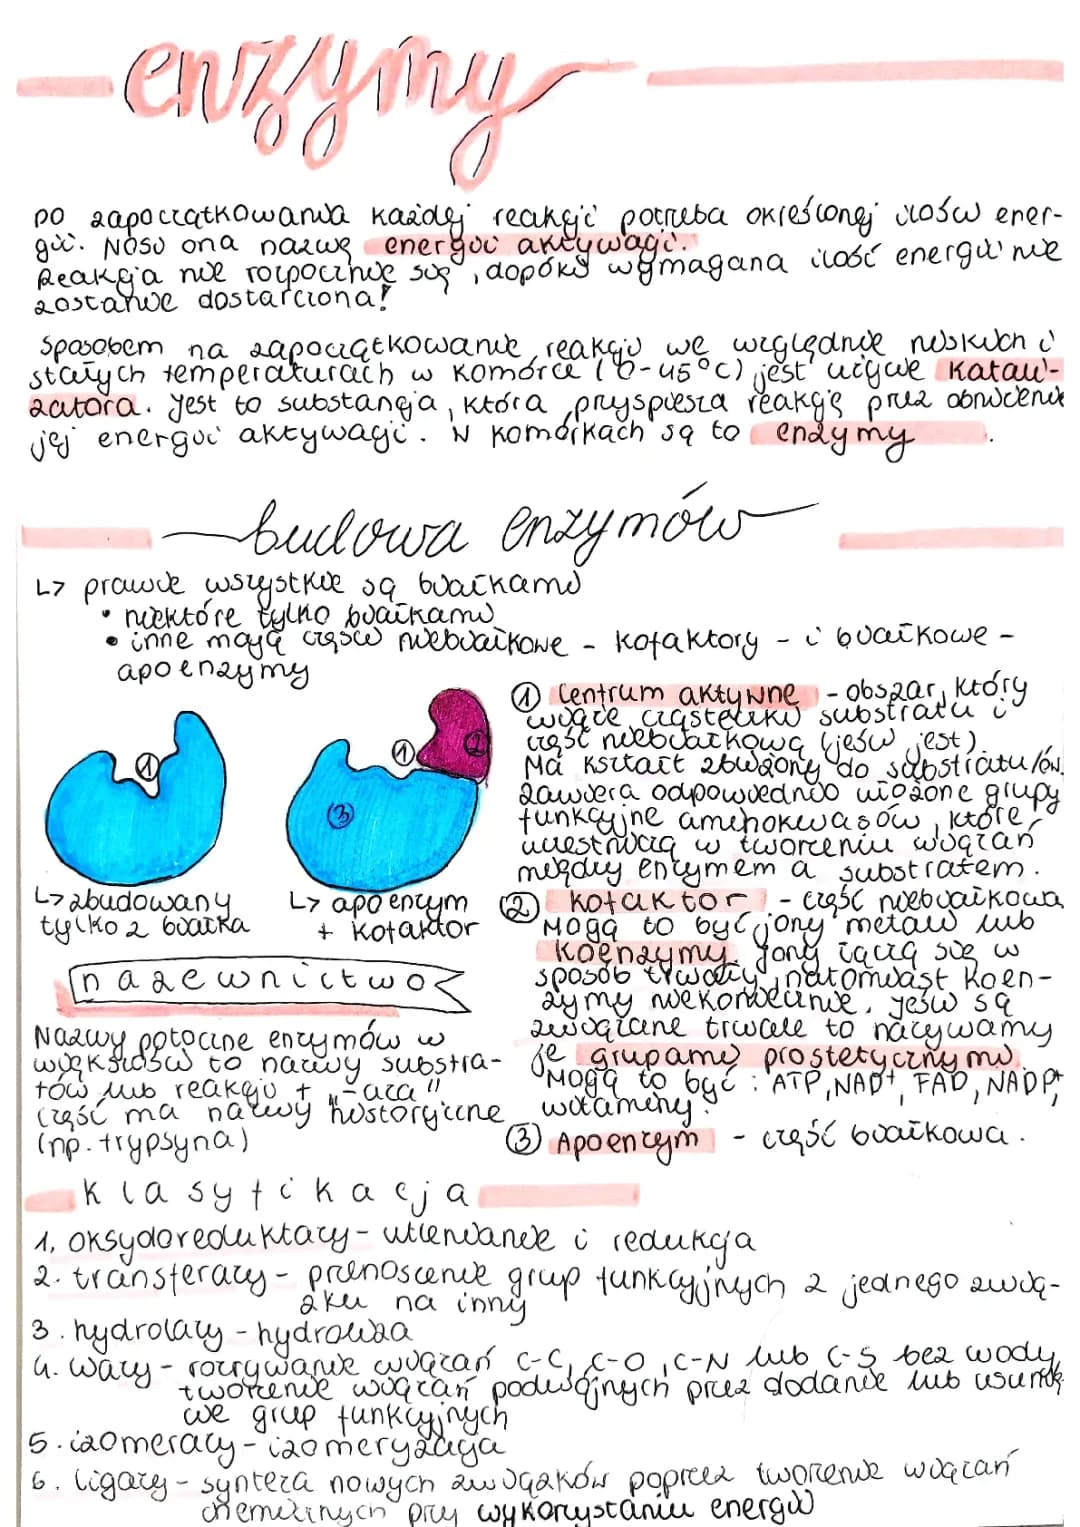 enzymy
DO zapoczątkowania każdej reakcji potrzeba określonej ilości ener-
gii. Nosi ona nazwę energii aktywacji.
Reakcja nie rozpocznie się, dopóki wymagana ilość energii nie
zostanie dostarczona!
Sposobem na zapoczątkowanie reakcji we względnie niskich i
stałych temperaturach w komórce (0-45°C) jest użycie katali-
zatora. Jest to substancja, która pryspiesza reakcję przez obniżenie
jej energii aktywacji. W komórkach są to enzymy.
budowa enzymów
↳ prawie wszystkie są białkami
• niektóre tylko białkami
• inne mają części niebiałkowe - kofaktory - i białkowe -
apoenzymy
① Centrum aktywne - obszar, który
wiąże cząsteczki substratu i
część niebiałkową (jeśli jest).
Ma kształt zbliżony do substratu/ów.
Zawiera odpowiednio ułożone grupy
funkcyjne aminokwasów, które
uczestniczą w tworzeniu wiązań
między enzymem a substratem.
1
1
2
3
↳ zbudowany
tylko z białka
↳ apoenzym
+ kofaktor
② kofaktor - część niebiałkowa
Mogą to być jony metali lub
koenzymy. Jony łączą się w
sposób trwały, natomiast koen-
zymy niekoniecznie. Jeśli są
związane trwale to nazywamy
je grupami prostetycznymi.
Mogą to być: ATP, NAD⁺, FAD, NADP⁺,
witaminy.
③ Apoenzym - część białkowa.
nazewnictwo
Nazwy potoczne enzymów w
większości to nazwy substra-
tów lub reakcji + „-aza"
Część ma nazwy historyczne
(np. trypsyna)
klasyfikacja
1. oksydoreduktazy - utlenianie i redukcja
2. transferazy - przenoszenie grup funkcyjnych z jednego zwią-
zku na inny
3. hydrolazy - hydroliza
4. liazy - rozrywanie wiązań C-C, C-O, C-N lub C-S bez wody,
tworzenie wiązań podwójnych przez dodanie lub usunię-
cie grup funkcyjnych
5. izomerazy - izomeryzacja
6. ligazy - synteza nowych związków poprzez tworzenie wiązań
chemicznych przy wykorzystaniu energii